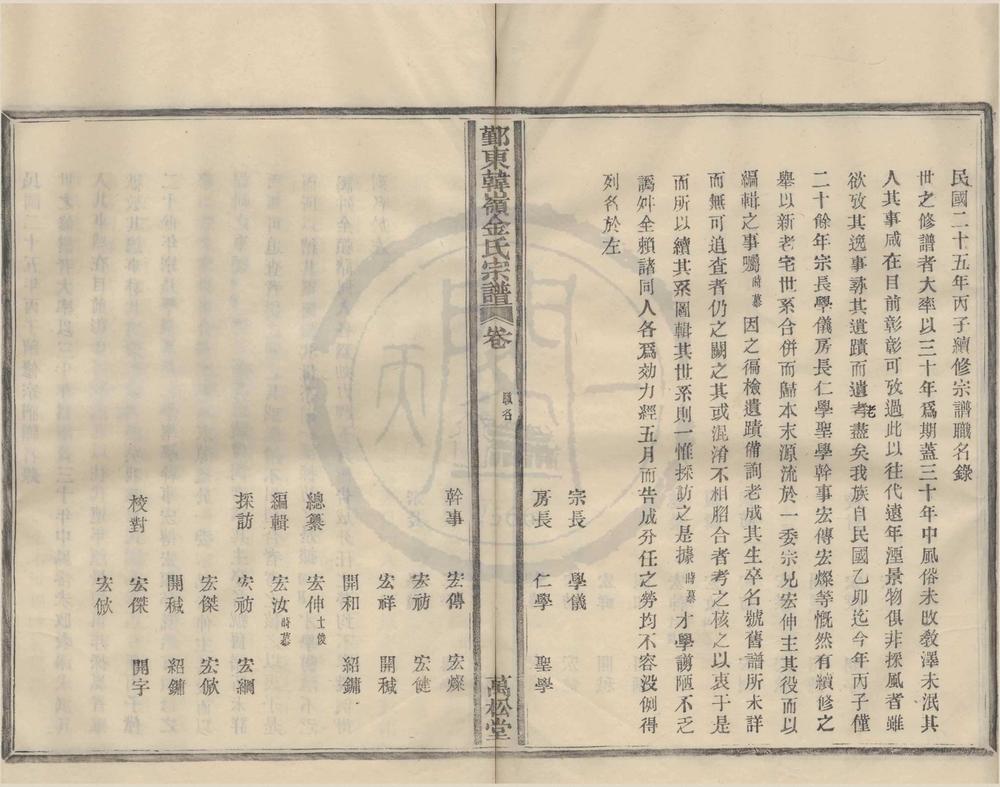 民國二十五年丙子續修宗譜職名錄
世之修譜者大率以三十年爲期蓋三十年中風俗未改敎澤未泯其
人其事咸在目前彰彰可攷過此以往代遠年湮景物俱非採風者雖
欲攷其逸事尋其遺蹟而遺老盡矣我族自民國乙卯迄今年丙子僅
二十餘年宗長學儀房長仁學聖學幹事宏傳宏燦等慨然有續修之
舉以新老宅世系合併而歸本末源流於一委宗兄宏伸主其役而以
編輯之事囑時蓦因之徧檢遺蹟備詢老成其生卒名號舊譜所未詳
而無可追查者仍之闕之其或混淆不相脗合者考之核之以衷于是
而所以續其系圖輯其世系則一惟採訪之是據時蓦才學謭陋不乏
譌舛全賴諸同人各爲効力經五月而告成分任之勞均不容没例得
列名於左
宗長 學儀
房長 仁學 聖學
鄞東韓嶺金氏宗譜 卷 職名 萬松堂
幹事 宏傳 宏燦
宏祊 宏健
宏祥 開穢
開和 紹鏞
總纂 宏伸士俊
編輯 宏汝時蓦
採訪 宏祊 宏綱
宏傑 宏歘
開穢 紹鏞
校對 宏傑 開宇
宏歘